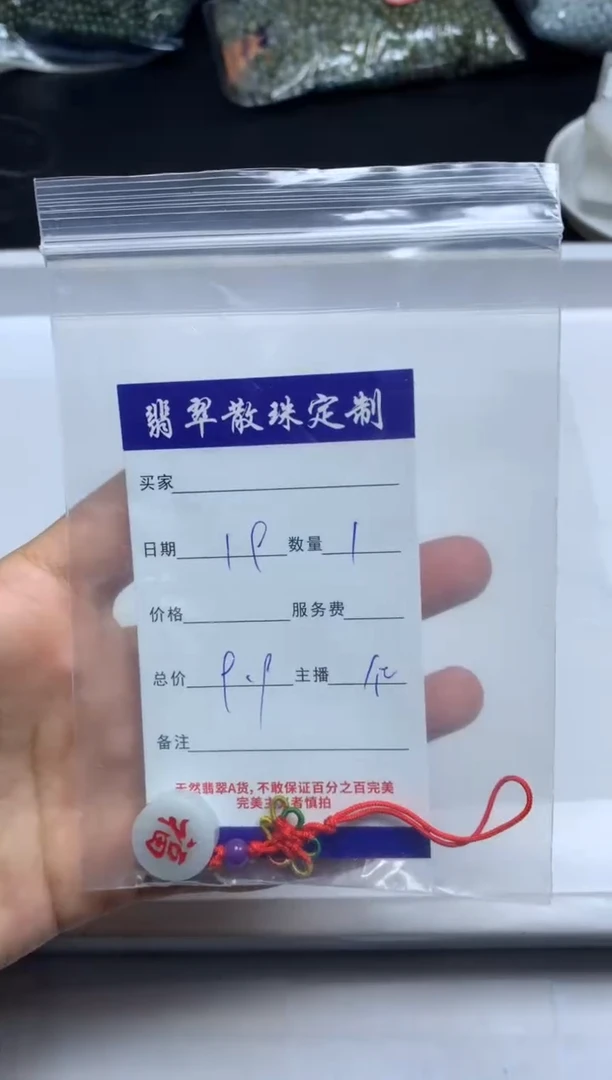 翡翠散珠定制
买家
日期 19 数量 1
价格 服务费
总价 9.9 主播
备注
天然翡翠A货,不敢保证百分之百完美
完美主义者慎拍
福